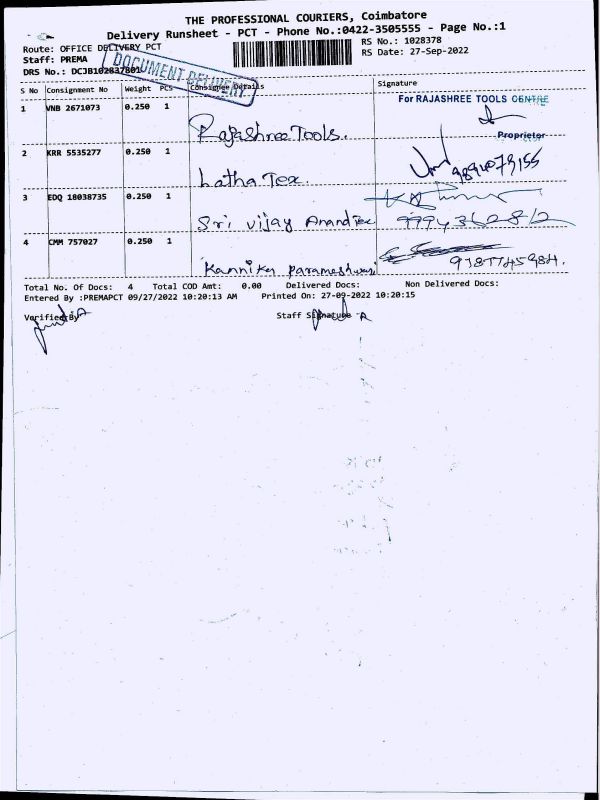 THE PROFESSIONAL COURIERS, Coimbatore
Delivery Runsheet - PCT - Phone No.:0422-3505555 - Page No.:1
Route: OFFICE DELIVERY PCT
RS No.: 1028378
Staff: PREMA
RS Date: 27-Sep-2022
DRS No.: DCJB102837801
DOCUMENT DELIVERY
S No Consignment No Weight PCS Consignee Details Signature
For RAJASHREE TOOLS CENTRE
1 VNB 2671073 0.250 1
Rajashree Tools.
Proprietor
2 KRR 5535277 0.250 1
Latha Tex.
3 EDQ 18038735 0.250 1
Sri vijay Anand Tex
4 CMM 757027 0.250 1
Kannika Parameshwari
Total No. Of Docs: 4 Total COD Amt: 0.00 Delivered Docs: Non Delivered Docs:
Entered By :PREMAPCT 09/27/2022 10:20:13 AM Printed On: 27-09-2022 10:20:15
Verified By
Staff Signature